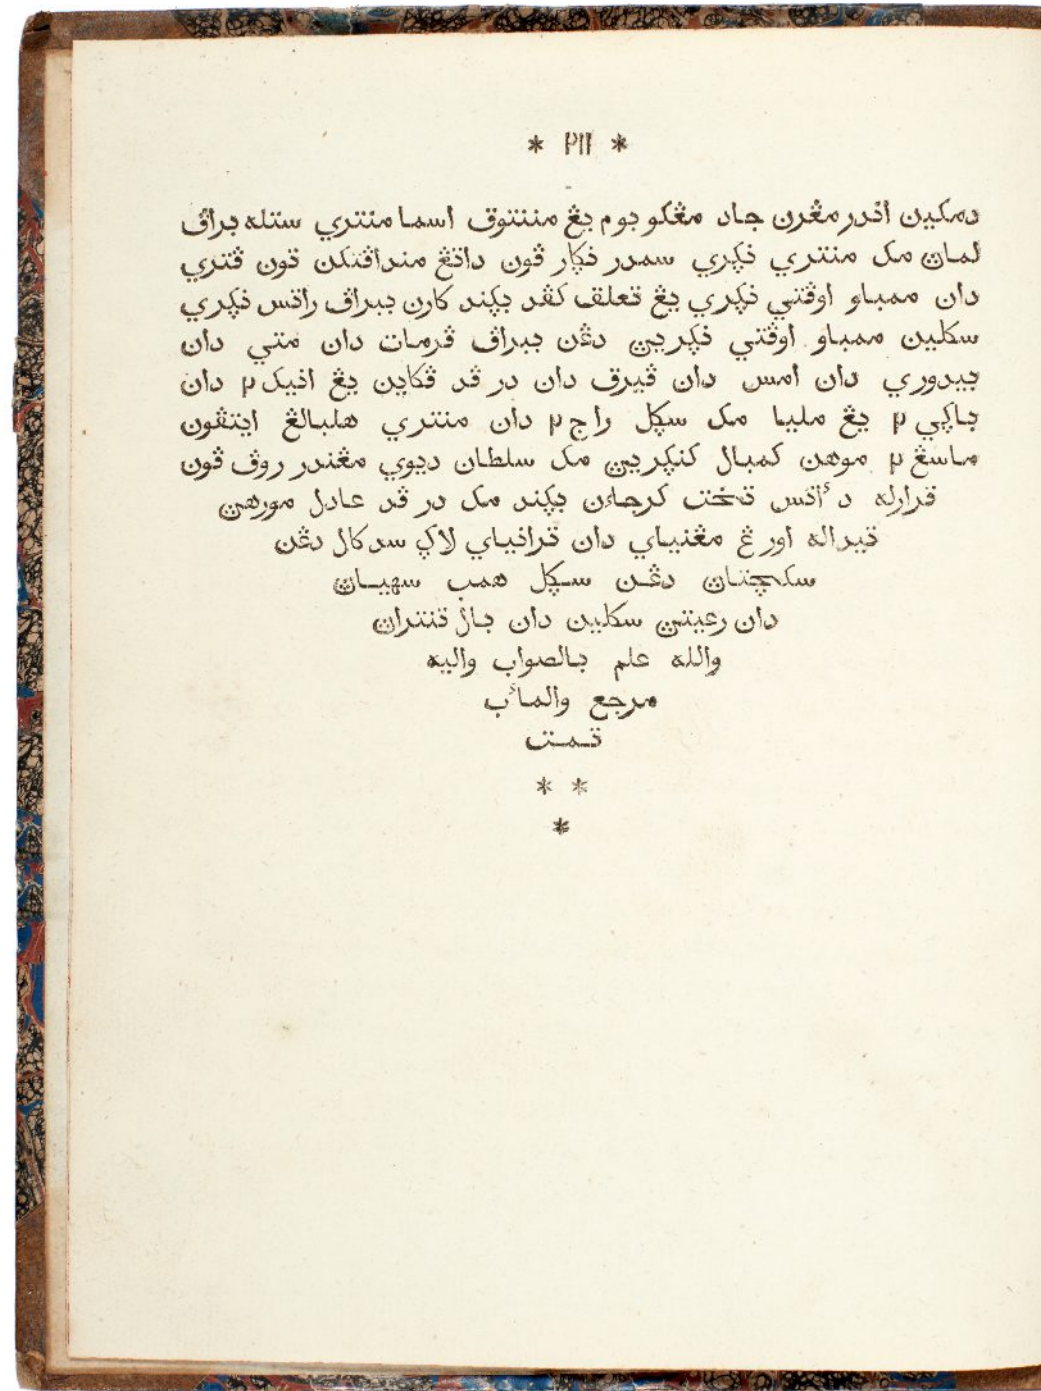 * ١١٢ *
دمكين اندر مڠرن جاد مڠكو بوم يڠ مننتوق اسما منتري ستله براڤ
لمان مک منتري نݢري سمدر نݢار ڤون داتڠ منداڤتكن تون ڤتري
دان ممباو اوڤتي نݢري يڠ تعلق كڤد بݢند كارن ببراڤ راتس نݢري
سكلين ممباو اوڤتي نݢرين دڠن ببراڤ ڤرمات دان متي دان
بيدوري دان امس دان ڤيرق دان در ڤد ڤكاين يڠ انيک٢ دان
باݢي٢ يڠ مليا مک سݢل راج٢ دان منتري هلبالڠ ايتڤون
ماسڠ٢ موهن كمبال كنݢرين مک سلطان ديوي مڠندر روڤ ڤون
قرارله دأتس تخت كرجاءن بݢند مک در ڤد عادل مورهن
تيداله اورڠ مڠنياي دان ترانياي لاݢي سدكال دڠن
سكچتان دڠن سݢل همب سهيان
دان رعيتن سكلين دان بال تنتران
والله علم بالصواب واليه
مرجع والمأب
تمت
* *
*